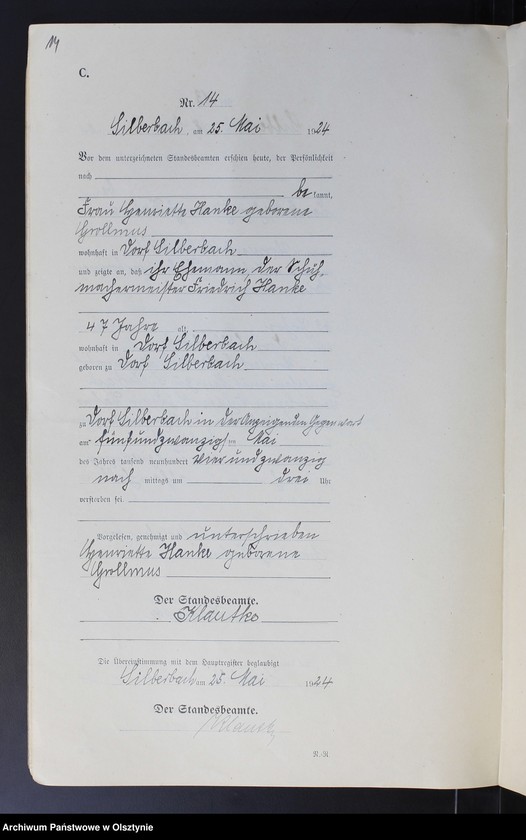 14
C.
Nr. 14
Silberbach, am 25. Mai 1924
Vor dem unterzeichneten Standesbeamten erschien heute, der Persönlichkeit
nach
be kannt,
Frau Henriette Hanke geborene
Grollmus
wohnhaft in Dorf Silberbach
und zeigte an, daß ihr Ehemann, der Schuh-
machermeister Friedrich Hanke
47 Jahre alt,
wohnhaft in Dorf Silberbach
geboren zu Dorf Silberbach
zu Dorf Silberbach in der Anzeigenden Gegenwart
am fünfundzwanzigsten Mai
des Jahres tausend neunhundert vierundzwanzig
nach mittags um drei Uhr
verstorben sei.
Vorgelesen, genehmigt und unterschrieben
Henriette Hanke geborene
Grollmus
Der Standesbeamte.
Klautke
Die Übereinstimmung mit dem Hauptregister beglaubigt
Silberbach am 25. Mai 1924
Der Standesbeamte.
R.-R
Archiwum Państwowe w Olsztynie